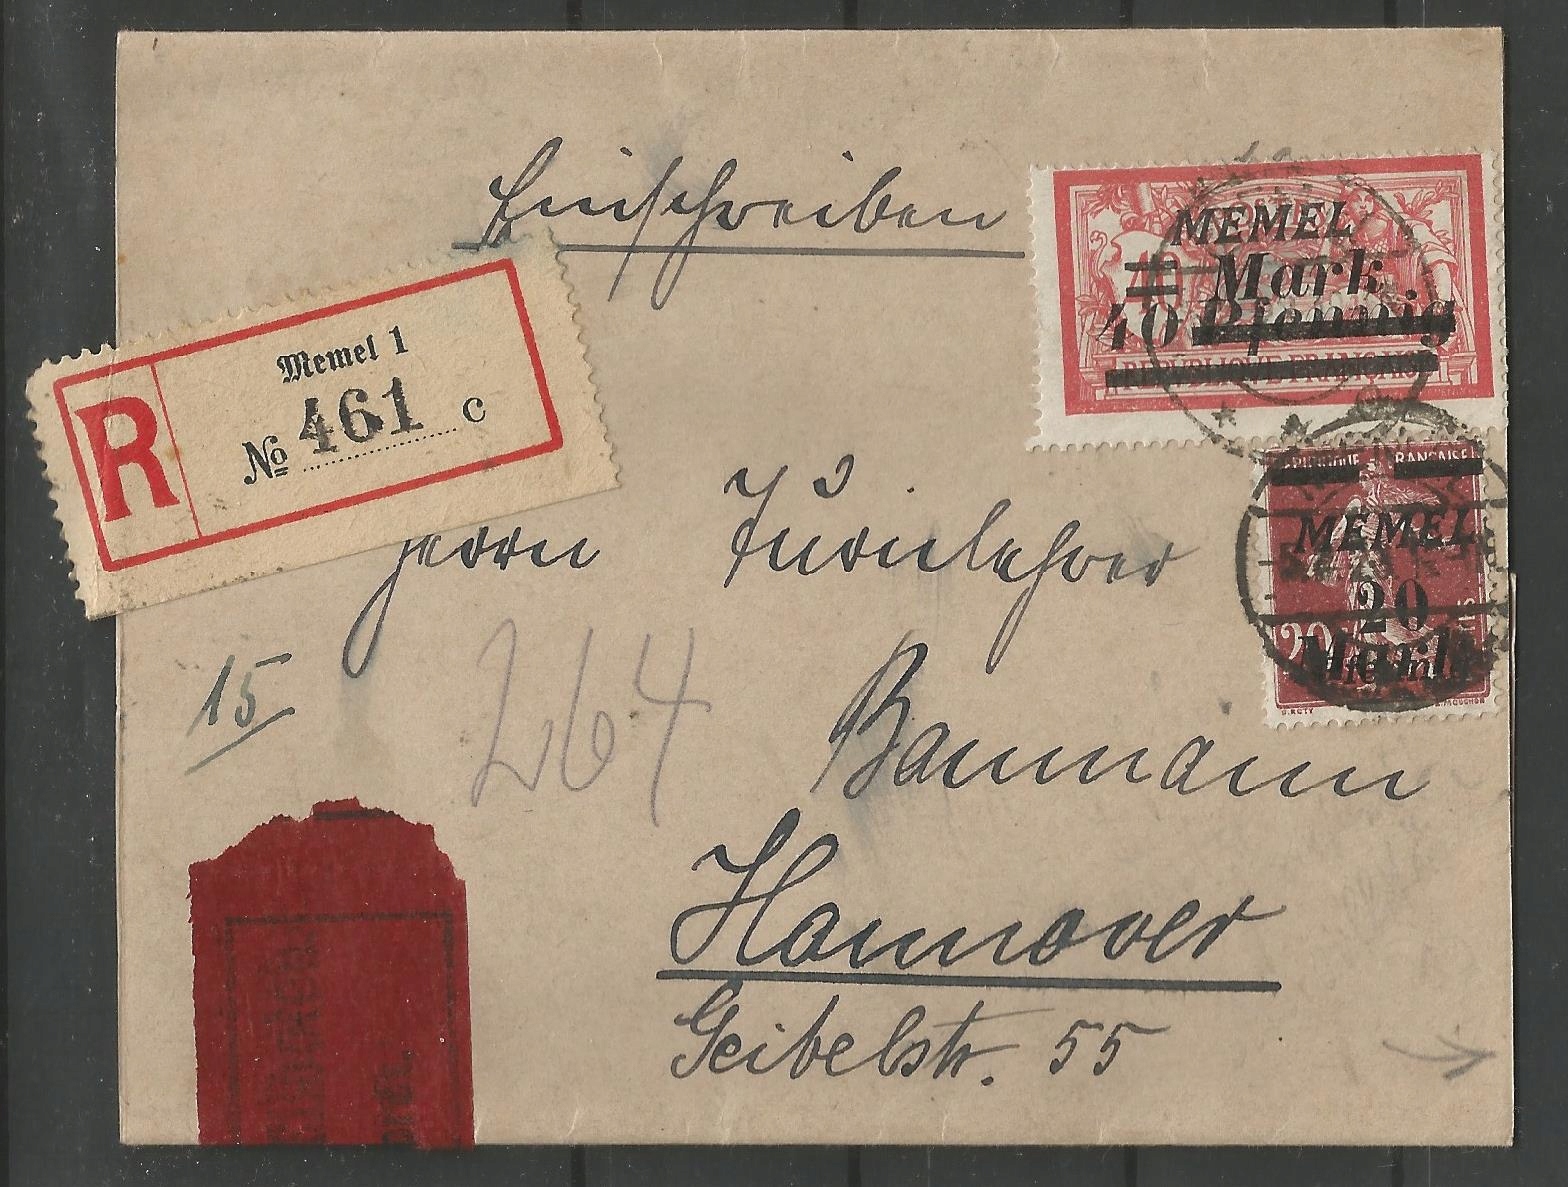 Einschreiben
MEMEL
40 Mark
40 Pfennig
REPUBLIQUE FRANÇAISE
Memel 1
R № 461 c
FRANÇAISE
MEMEL
20
Mark
Herrn Turnlehrer
15
264
Baumann
Hannover
Geibelstr. 55